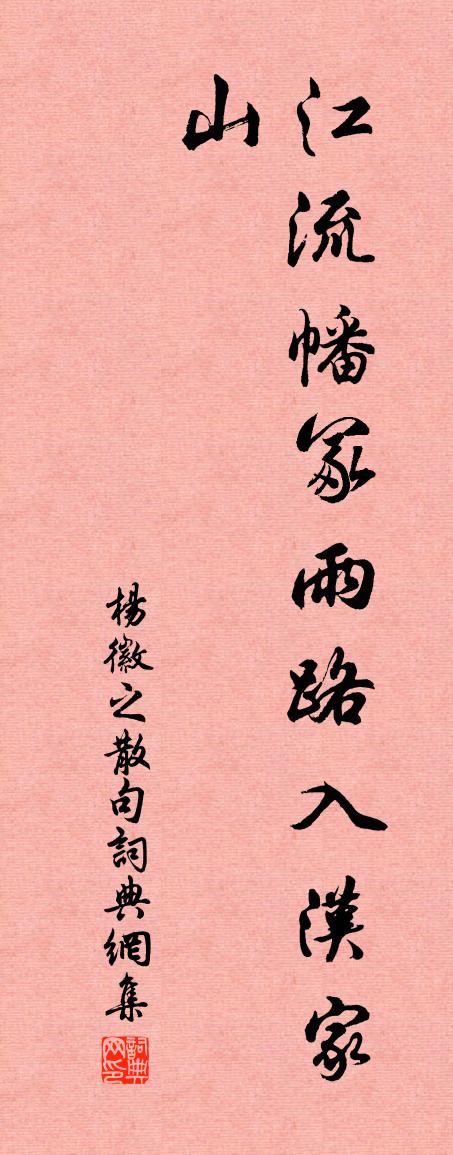 江流幡冢雨路入漢家
山
楊徽之散句詞典網集
詞典网印